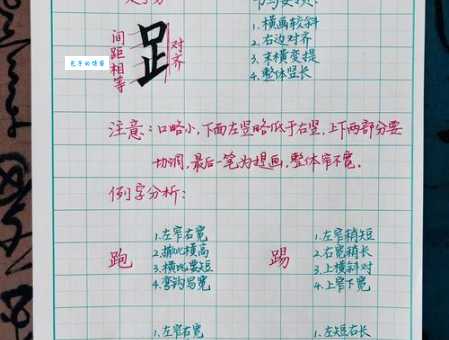 𧾷
间距相等
对齐
1.横画较斜
2.右边对齐
3.末横变提
4.整体竖长
注意:口略小,下面左竖略低于右竖,上下两部分要
协调,最后一笔为提画,整体窄不宽。
例字分析:
跑
1.左窄右宽
2.撇比横高
3.横比要短
4.弯钩易宽
踢
1.左窄稍短
2.右宽稍长
3.上横斜对
4.上窄下宽
1.左窄右宽
1.左短右长